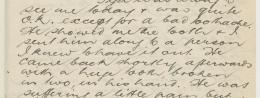 see me today & was quite
O.K. except for a bad toothache.
He showed me the tooth & I
sent him along to a person
I knew to have it out. He
came back shortly afterwards
with a huge tooth, broken
in two, in his hand. He was
suffering a little pain but